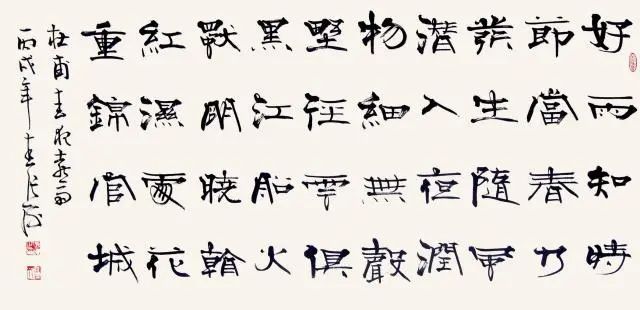 好雨知時
節當春乃
發生隨風
潛入夜潤
物細無聲
野徑雲俱
黑江船火
獨明曉看
紅濕處花
重錦官城
杜甫春夜喜雨
丙戌年春